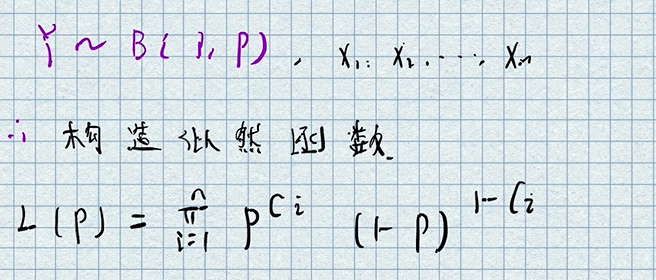 Y ~ B(1, P), X₁, X₂, ..., Xₙ
∴ 构造似然函数.
L(P) = ∏ᵢ₌₁ⁿ P^{Cᵢ} (1-P)^{1-Cᵢ}